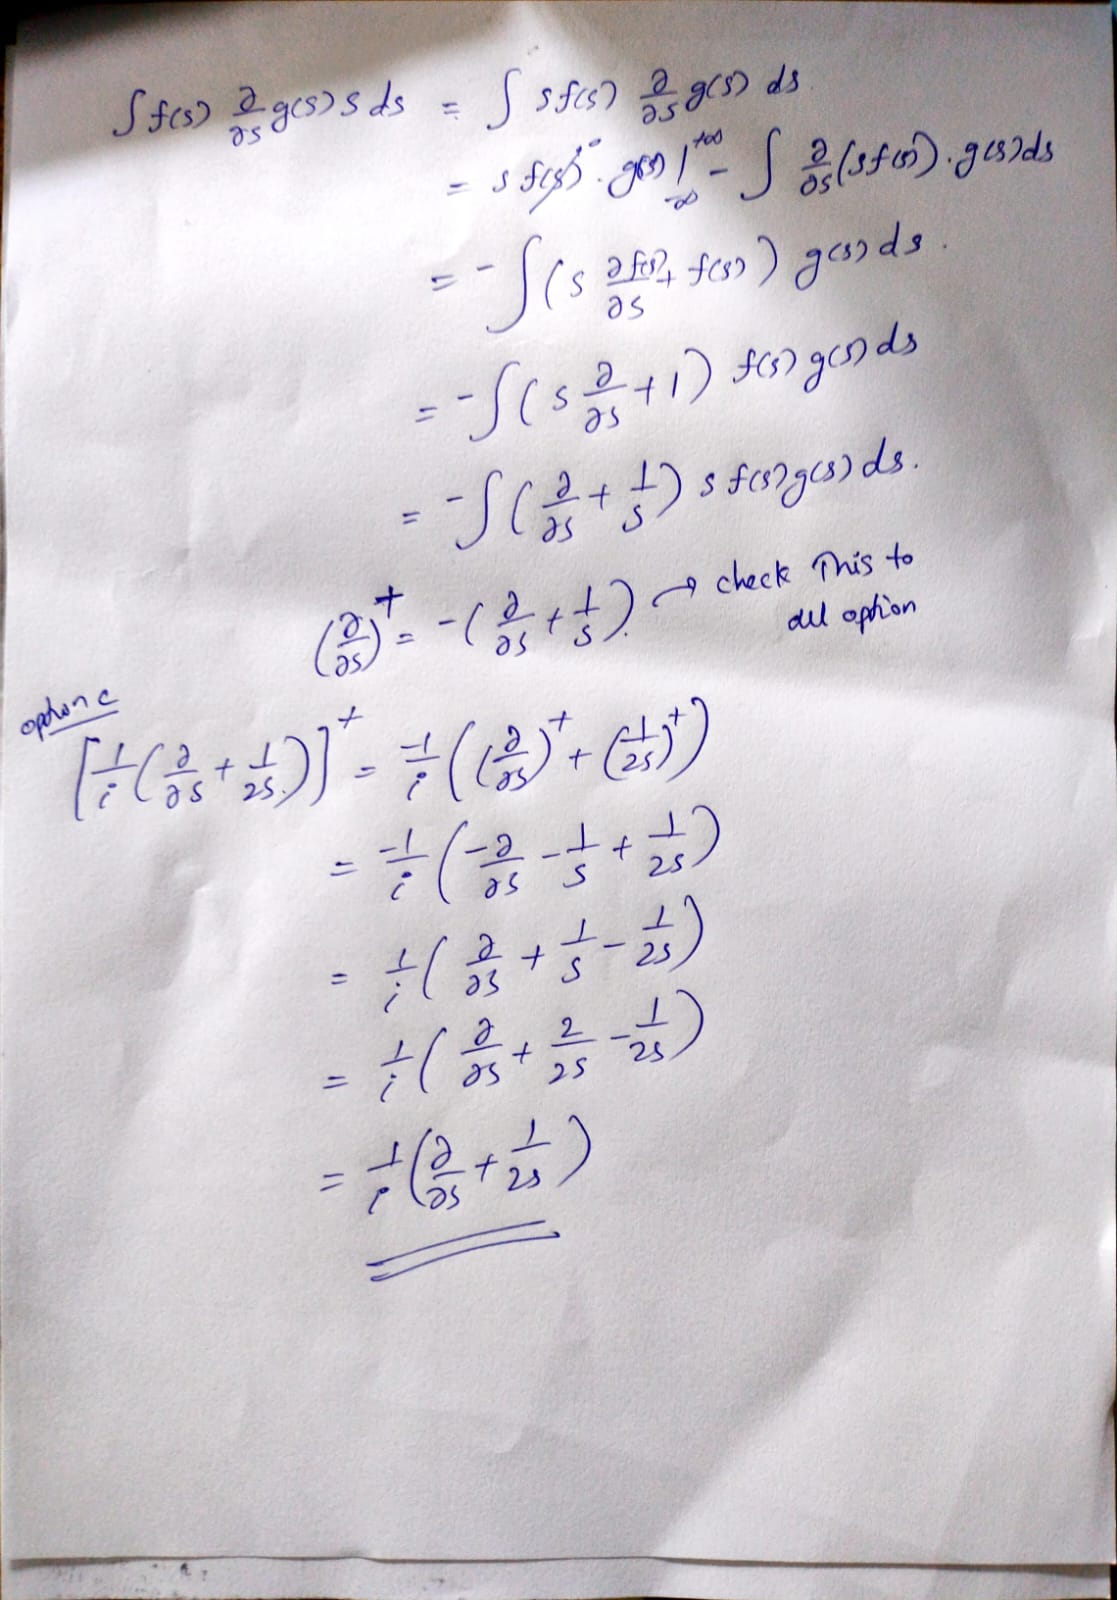 ∫ f(s) ∂/∂s g(s) s ds = ∫ s f(s) ∂/∂s g(s) ds
= s f(s) · g(s) |_{-∞}^{+∞} - ∫ ∂/∂s (s f(s)) · g(s) ds
= - ∫ (s ∂f(s)/∂s + f(s)) g(s) ds.
= - ∫ (s ∂/∂s + 1) f(s) g(s) ds
= - ∫ (∂/∂s + 1/s) s f(s) g(s) ds.
(∂/∂s)^+ = -(∂/∂s + 1/s). → check This to
all option
option c
[1/i (∂/∂s + 1/2s)]^+ = -1/i ((∂/∂s)^+ + (1/2s)^+)
= -1/i (-∂/∂s - 1/s + 1/2s)
= 1/i (∂/∂s + 1/s - 1/2s)
= 1/i (∂/∂s + 2/2s - 1/2s)
= 1/i (∂/∂s + 1/2s)